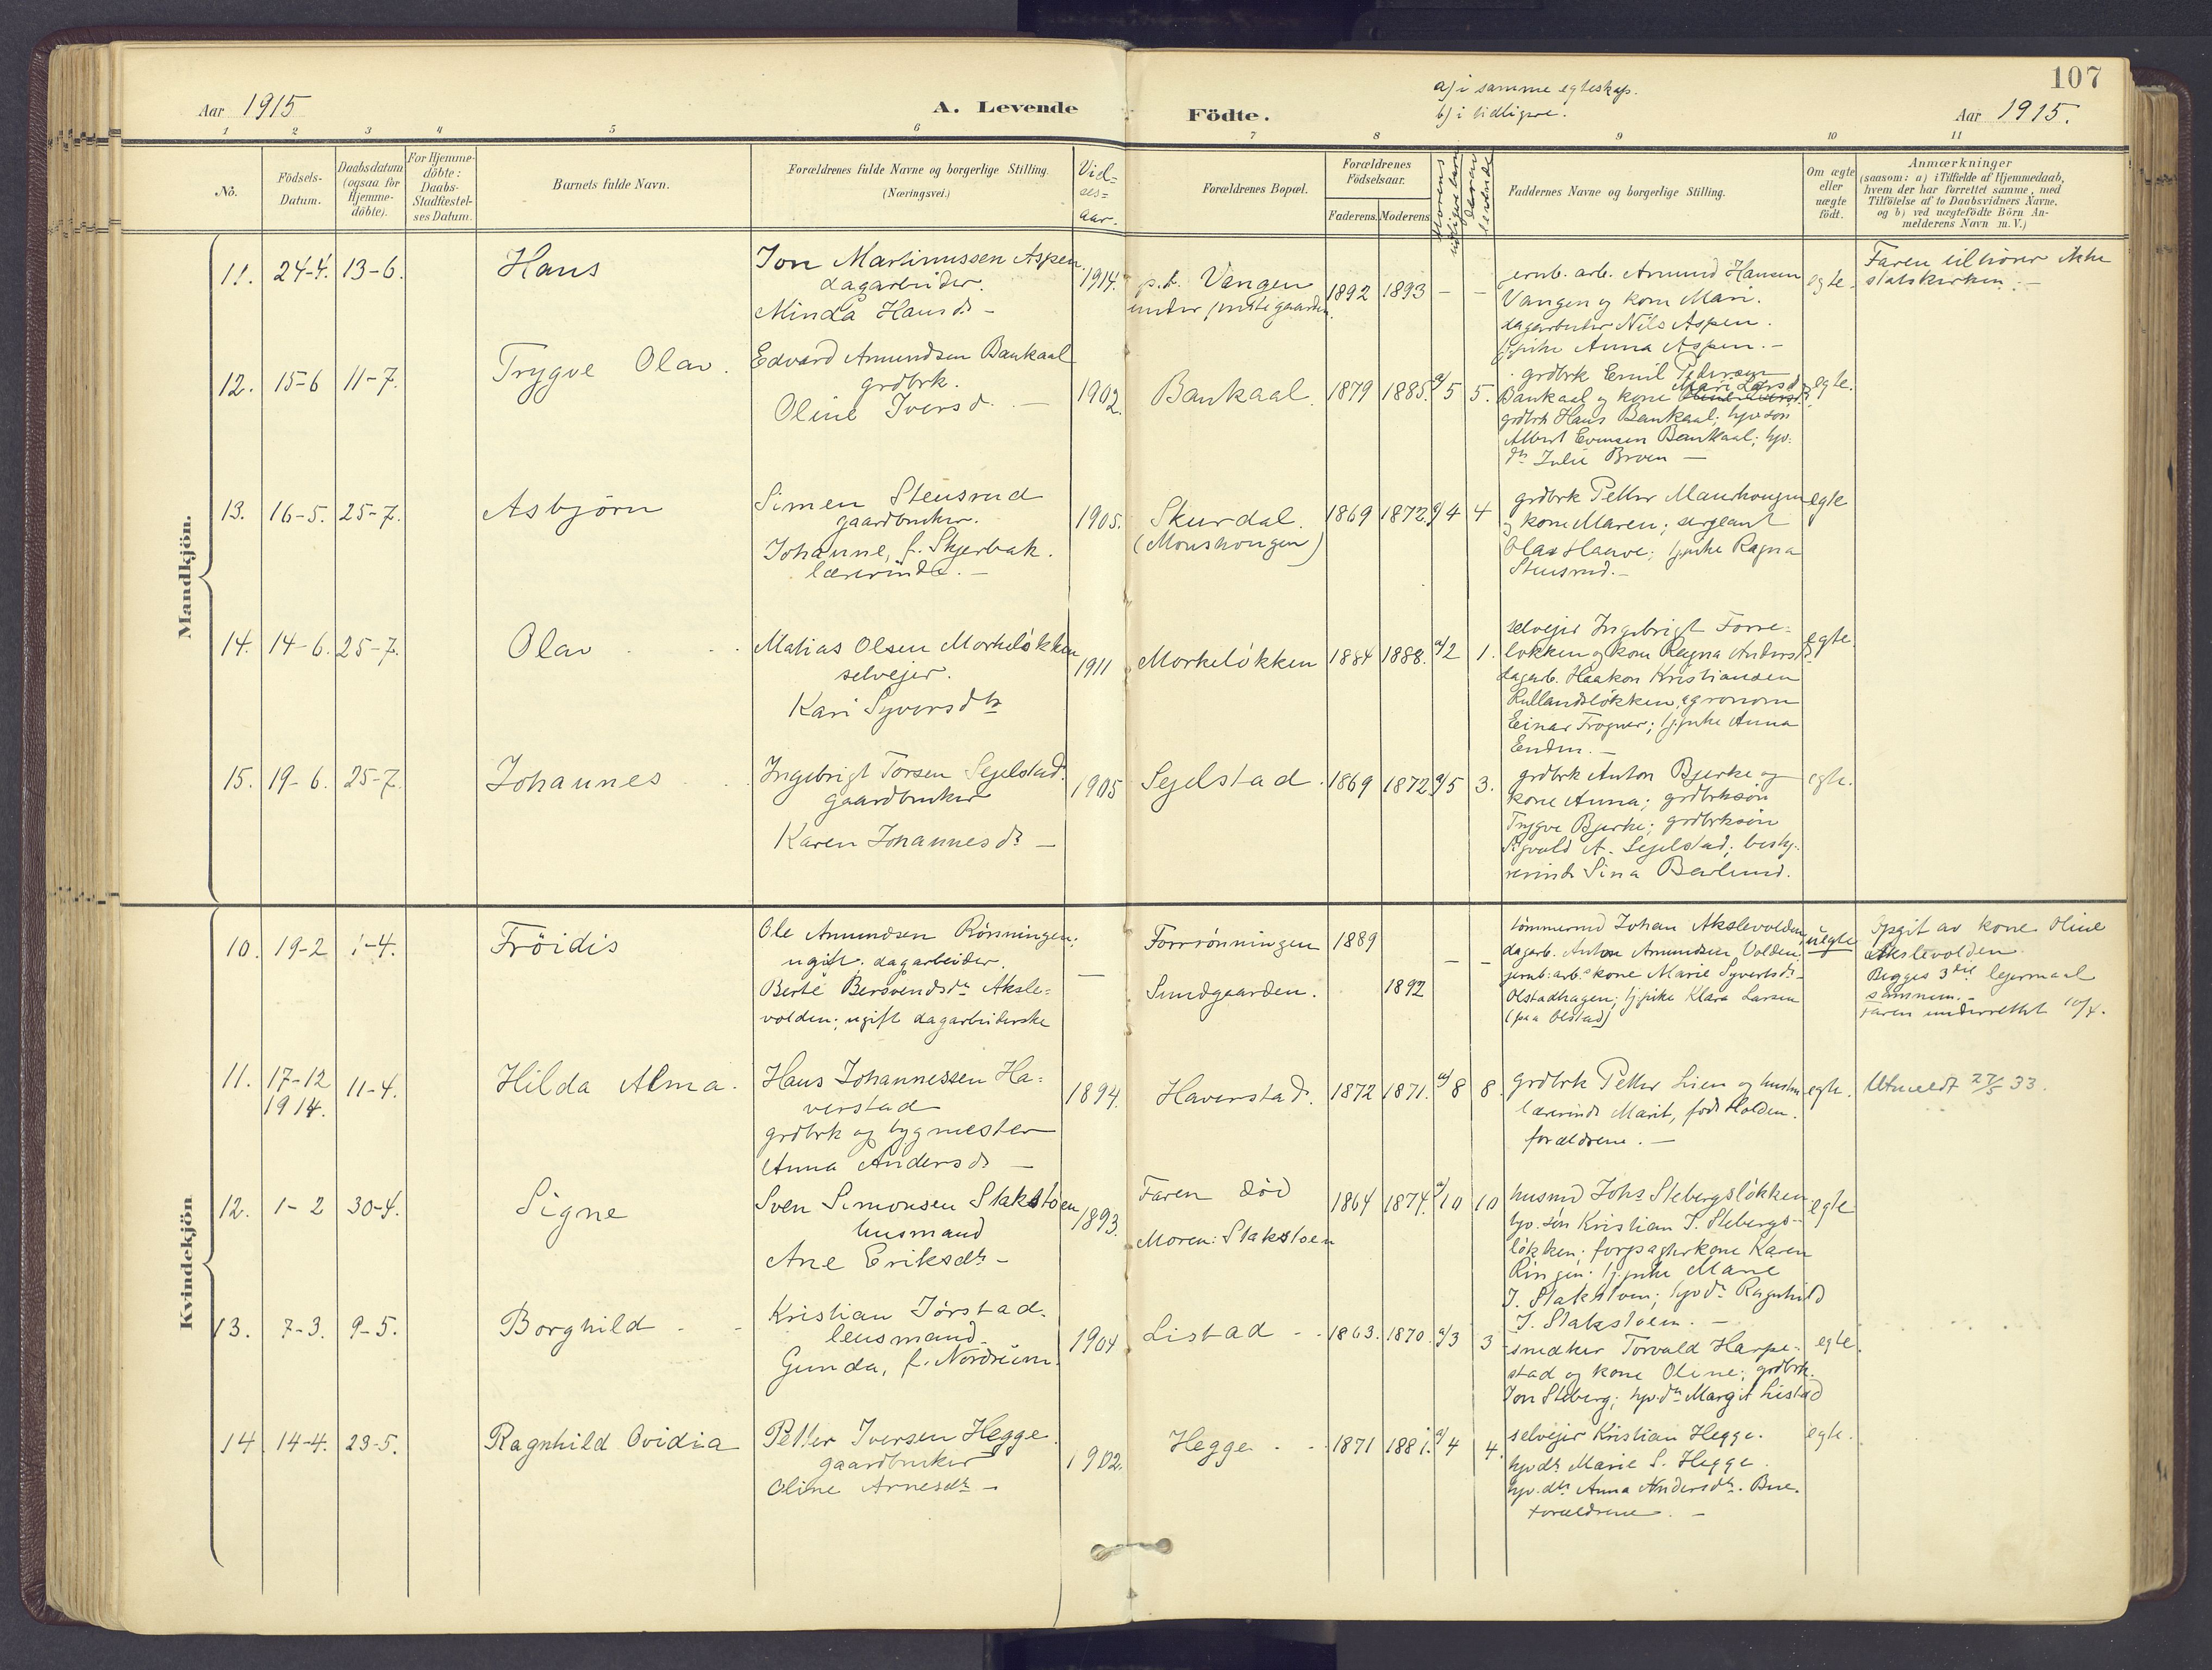 107
a) i samme egteskap.
b) i tidligere.
Aar 1915
A. Levende
Födte.
Aar 1915.
1 2 3 4 5 6 7 8 9 10 11
Nö.
Födsels-
Datum.
Daabsdatum
(ogsaa for
Hjemme-
döbte).
For Hjemme-
döbte:
Daabs-
Stadfæstel-
ses Datum.
Barnets fulde Navn.
Forældrenes fulde Navne og borgerlige Stilling.
(Næringsvei.)
Viel-
ses-
aar.
Forældrenes Bopæl.
Forældrenes
Födselsaar.
Faderens. Moderens.
Morens
tidligere barn
Derav
levende
Faddernes Navne og borgerlige Stilling.
Om ægte
eller
uægte
födt.
Anmærkninger
(saasom: a) i Tilfælde af Hjemmedaab,
hvem der har forrettet samme, med
Tilföielse af to Daabsvidners Navne,
og b) ved uægtefödte Börn An-
melderens Navn m. V.)
Mandkjön.
11. 24-4. 13-6. Hans
Jon Martinussen Aspen
dagarbeider.
Minda Hansd. -
1914.
p.t. Vangen
under prestegaarden.
1892 1893 - -
jernb. arb. Amund Hansen
Vangen og kone Mari.
dagarbeider Nils Aspen.
tj.pike Anna Aspen. -
egte.
Faren tilhører ikke
statskirken. -
12. 15-6 11-7. Trygve Olav.
Edvard Amundsen Bankaal
grdbrk.
Oline Iversd. -
1902.
Bankaal. 1879 1885. a/5 5.
grdbrk Emil Pedersen
Mari Larsd
Bankaal og kone
grdbrk Hans Bankaal; hjv. søn
Albert Evensen Bankaal; hjv.
dtr Julie Broen -
egte.
13. 16-5. 25-7. Asbjörn
Simen Stensrud
gaardbruker.
Johanne, f. Skjerbak.
lærerinde. -
1905.
Skurdal.
(Moushougen)
1869 1872. a/4 4
grdbrk Petter Maurhougen
og kone Maren; sergeant
Olaf Haave; tj.pike Ragna
Stensrud. -
egte
14. 14-6. 25-7. Olav
Matias Olsen Morkeløkken
selvejer.
Kari Syversdtr
1911
Morkeløkken 1884 1888. a/2 1.
selvejer Ingebrigt Forre-
løkken og kone Ragna Andersd.
dagarb. Haakon Kristiansen
Rullandsløkken, agronom
Einar Frogner; tj.pike Anna
Enden. -
egte.
15. 19-6. 25-7. Johannes
Ingebrigt Torsen Segelstad.
gaardbruker
Karen Johannesdr -
1905
Segelstad. 1869 1872. a/5 3.
grdbrk Anton Bjerke og
kone Anna; grdbrksøn
Trygve Bjerke; grdbrksøn
Sigvald A. Segelstad; besty-
rerinde Sina Baulund.
egte.
Kvindekjön
10. 19-2 1-4. Fröidis
Ole Amundsen Rönningen;
ugift. dagarbeider.
Berte Bersvendsdr Aksle-
volden; ugift dagarbeiderske
-
Forrrönningen 1889
Sundgaarden. 1892
- -
tömmermd Johan Akslevolden,
dagarb. Anton Amundsen Volden.
jernb: arb.s kone Marie Syvertsdr -
Olstadhagen; tj.pike Klara Larsen
(paa Olstad)
uegte
Opgit av kone Oline
Akslevolden.
Begges 3die lejermaal
sammen. -
Faren underrettet 10/4.
11. 17-12
1914. 11-4. Hilda Alma.
Hans Johannessen Ha-
verstad
grdbrk og bygmester
Anna Andersdr -
1894.
Haverstad. 1872 1871. a/8 8.
grdbrk Petter Lien og hustru
lærerinde Marit, født Holden.
forældrene. -
egte.
Utmeldt 27/5 33.
12. 1-2 30-4. Signe
Sven Simonsen Stakstoen
husmand
Ane Eriksdtr -
1893.
Faren død
Moren: Stakstoen
1864 1874. a/10 10
husmd Johs Stebergsløkken.
hjv. søn Kristian J. Stebergs-
løkken. forpagterkone Karen
Ringen. tj.pike Marie
J. Stakstoen; hjv.dr Ragnhild
J. Stakstoen. -
egte
13. 7-3. 9-5. Borghild
Kristian Jörstad.
lensmand.
Gunda, f. Nordrum.
1904
Listad 1863. 1870. a/3 3
snedker Torvald Harpe-
stad og kone Oline; grdbrk.
Jon Steberg; hjv.dtr Margit Listad
egte.
14 14-4. 23-5. Ragnhild Ovidia
Petter Iversen Hegge
gaardbruker
Oline Arnesdtr -
1902.
Hegge 1871 1881. a/4 4.
selvejer Kristian Hegge.
hjv.dtr Marie S. Hegge.
hjv. dtr Anna Andersdtr. Bue.
forældrene. -
egte.